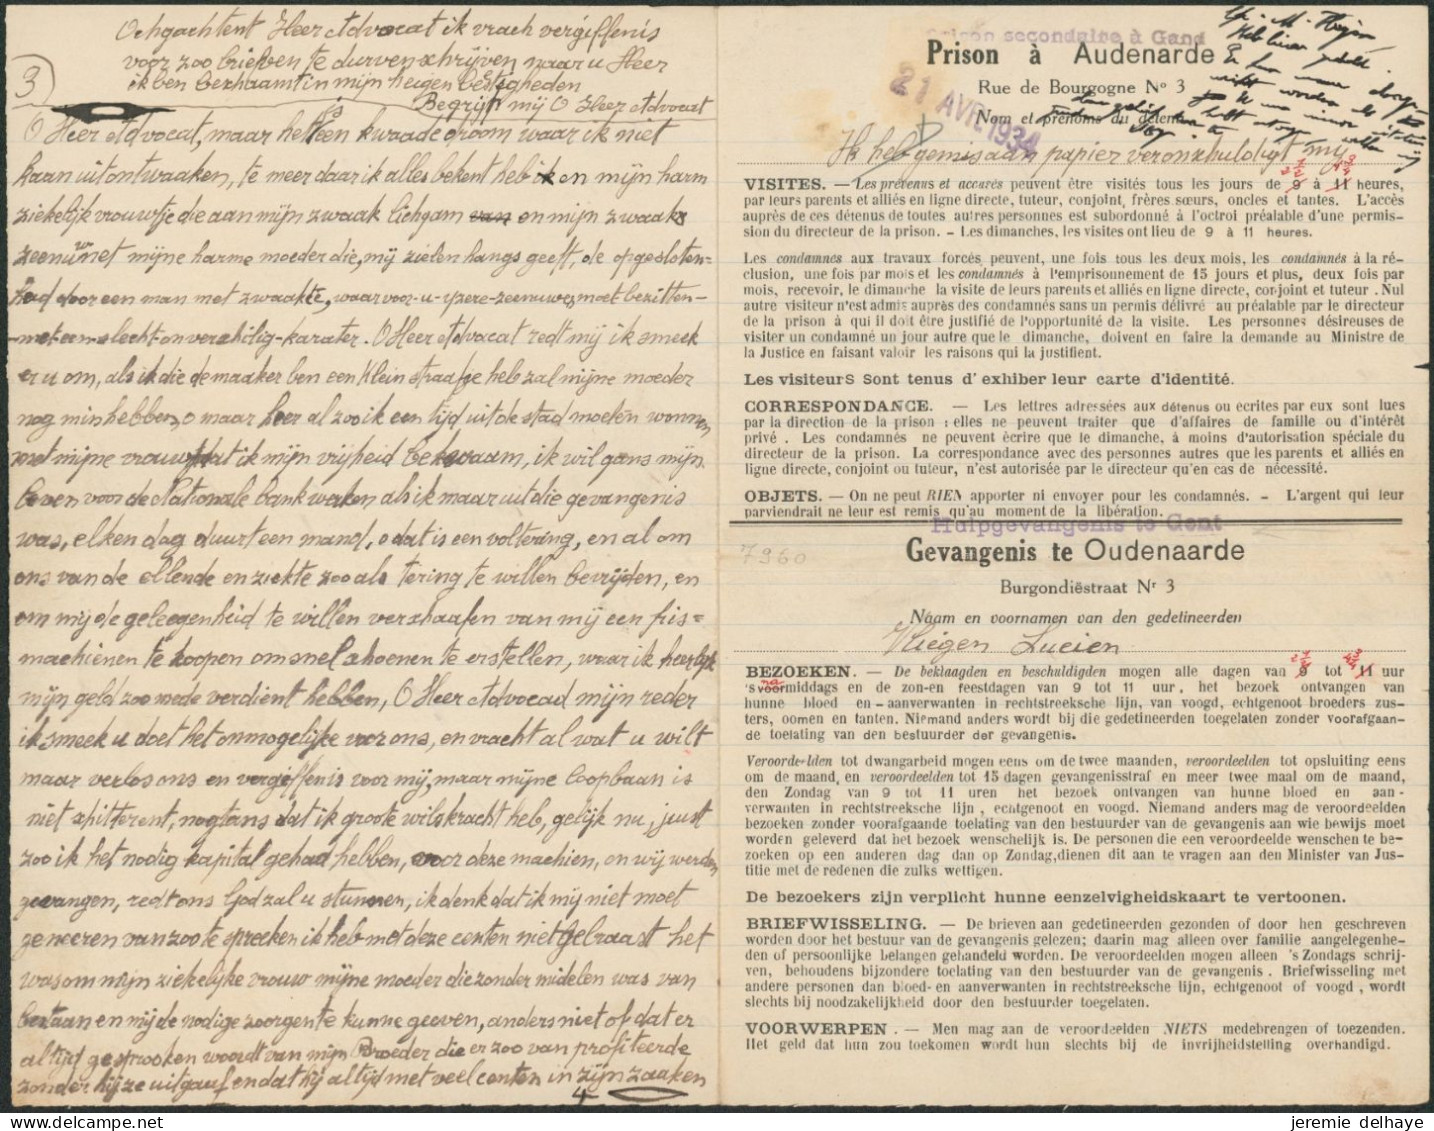 Ochgachtent Heer Advocat ik vrach vergiffenis
voor zoo brieven te durven schrijven naar u Heer
ik ben beschaamt in mijn heigen bestigheden
Begrijp mij O Heer Advocat
3
O Heer Advocat, maar het is een kwaade droom waar ik niet
kaan uit ontwaaken, te meer daar ik alles bekent heb ik en mijn harm
ziekelijk vrouwtje die aan mijn zwaak lichgam van en mijn zwaake
zeenuw met mijne harme moeder die mij zielen hangs geeft, de opgesloten-
had door een man met zwaakte, waar voor u ijzere zeenuwes moet bezitten-
met een slecht onverschilig karater. O Heer Advocat redt mij ik smeek
er u om, als ik die de maaker ben een klein straafje heb zal mijne moeder
nog min hebben, o maar heer al zoo ik een tijd uit de stad moeten wonnen
met mijne vrouw dat ik mijn vrijheid bekwaam, ik wil gans mijn
leven voor de Nationale bank werken als ik maar uit die gevangenis
was, elken dag duurt een mand, o dat is een voltering, en al om
ons van de ellende en ziekte zoo als tering te willen bevrijden, en
om mij de geleegenheid te willen verschaafen van mij een fris=
machienen te koopen om snel schoenen te erstellen, waar ik heerlijk
mijn geld zoo mede verdient hebben, O Heer Advocad mijn reder
ik smeek u doet het onmogelijke voor ons, en vracht al wat u wilt
maar verlos ons en vergiffenis voor mij, maar mijne loopbaan is
niet schitterent, nogtans dat ik groote wilskracht heb, gelijk nu, juist
zoo ik het nodig kapital gehad hebben, voor deze machien, en wij werden
gevangen, redt ons God zal u stunnen, ik denk dat ik mij niet moet
geneeren van zoo te spreeken ik heb met deze centen niet gebraast het
was om mijn ziekelijke vrouw mijne moeder die zonder midelen was van
bestaan en mij de nodige zoorgen te kunne geeven, anders niet of dat er
altijd gesprooken woordt van mijn Broeder die er zoo van profiteerde
zonder hij ze uitgauf en dat hij altijd met veel centen in zijn zaaken
4
Prison secondaire à Gand
Prison à Audenarde
Rue de Bourgogne No 3
21 AVR 1934
Nom et prénoms du détenu
Ik heb gemis aan papier veronschuldigt mij
VISITES. — Les prévenus et accusés peuvent être visités tous les jours de 9 à 11 heures,
par leurs parents et alliés en ligne directe, tuteur, conjoint, frères sœurs, oncles et tantes. L'accès
auprès de ces détenus de toutes autres personnes est subordonné à l'octroi préalable d'une permis-
sion du directeur de la prison. - Les dimanches, les visites ont lieu de 9 à 11 heures.
Les condamnés aux travaux forcés peuvent, une fois tous les deux mois, les condamnés à la ré-
clusion, une fois par mois et les condamnés à l'emprisonnement de 15 jours et plus, deux fois par
mois, recevoir, le dimanche la visite de leurs parents et alliés en ligne directe, conjoint et tuteur. Nul
autre visiteur n'est admis auprès des condamnés sans un permis délivré au préalable par le directeur
de la prison à qui il doit être justifié de l'opportunité de la visite. Les personnes désireuses de
visiter un condamné un jour autre que le dimanche, doivent en faire la demande au Ministre de
la Justice en faisant valoir les raisons qui la justifient.
Les visiteurs sont tenus d'exhiber leur carte d'identité.
CORRESPONDANCE. — Les lettres adressées aux détenus ou ecrites par eux sont lues
par la direction de la prison : elles ne peuvent traiter que d'affaires de famille ou d'intérêt
privé . Les condamnés ne peuvent écrire que le dimanche, à moins d'autorisation spéciale du
directeur de la prison. La correspondance avec des personnes autres que les parents et alliés en
ligne directe, conjoint ou tuteur, n'est autorisée par le directeur qu'en cas de nécessité.
OBJETS. — On ne peut RIEN apporter ni envoyer pour les condamnés. - L'argent qui leur
parviendrait ne leur est remis qu'au moment de la libération.
Hulpgevangenis te Gent
7960
Gevangenis te Oudenaarde
Burgondiëstraat Nr 3
Náam en voornamen van den gedetineerden
Vliegen Lucien
BEZOEKEN. — De beklaagden en beschuldigden mogen alle dagen van 9 tot 11 uur
's voormiddags en de zon-en feestdagen van 9 tot 11 uur, het bezoek ontvangen van
hunne bloed en - aanverwanten in rechtstreeksche lijn, van voogd, echtgenoot broeders zus-
ters, oomen en tanten. Niemand anders wordt bij die gedetineerden toegelaten zonder voorafgaan-
de toelating van den bestuurder der gevangenis.
Veroordeelden tot dwangarbeid mogen eens om de twee maanden, veroordeelden tot opsluiting eens
om de maand, en veroordeelden tot 15 dagen gevangenisstraf en meer twee maal om de maand,
den Zondag van 9 tot 11 uren het bezoek ontvangen van hunne bloed en aan-
verwanten in rechtstreeksche lijn , echtgenoot en voogd. Niemand anders mag de veroordeelden
bezoeken zonder voorafgaande toelating van den bestuurder van de gevangenis aan wie bewijs moet
worden geleverd dat het bezoek wenschelijk is. De personen die een veroordeelde wenschen te be-
zoeken op een anderen dag dan op Zondag, dienen dit aan te vragen aan den Minister van Jus-
titie met de redenen die zulks wettigen.
De bezoekers zijn verplicht hunne eenzelvigheidskaart te vertoonen.
BRIEFWISSELING. — De brieven aan gedetineerden gezonden of door hen geschreven
worden door het bestuur van de gevangenis gelezen; daarin mag alleen over familie aangelegenhe-
den of persoonlijke belangen gehandeld worden. De veroordeelden mogen alleen 's Zondags schrij-
ven, behoudens bijzondere toelating van den bestuurder van de gevangenis . Briefwisseling met
andere personen dan bloed- en aanverwanten in rechtstreeksche lijn, echtgenoot of voogd , wordt
slechts bij noodzakelijkheid door den bestuurder toegelaten.
VOORWERPEN . — Men mag aan de veroordeelden NIETS medebrengen of toezenden.
Het geld dat hun zou toekomen wordt hun slechts bij de invrijheidstelling overhandigd.
jeremie delhaye